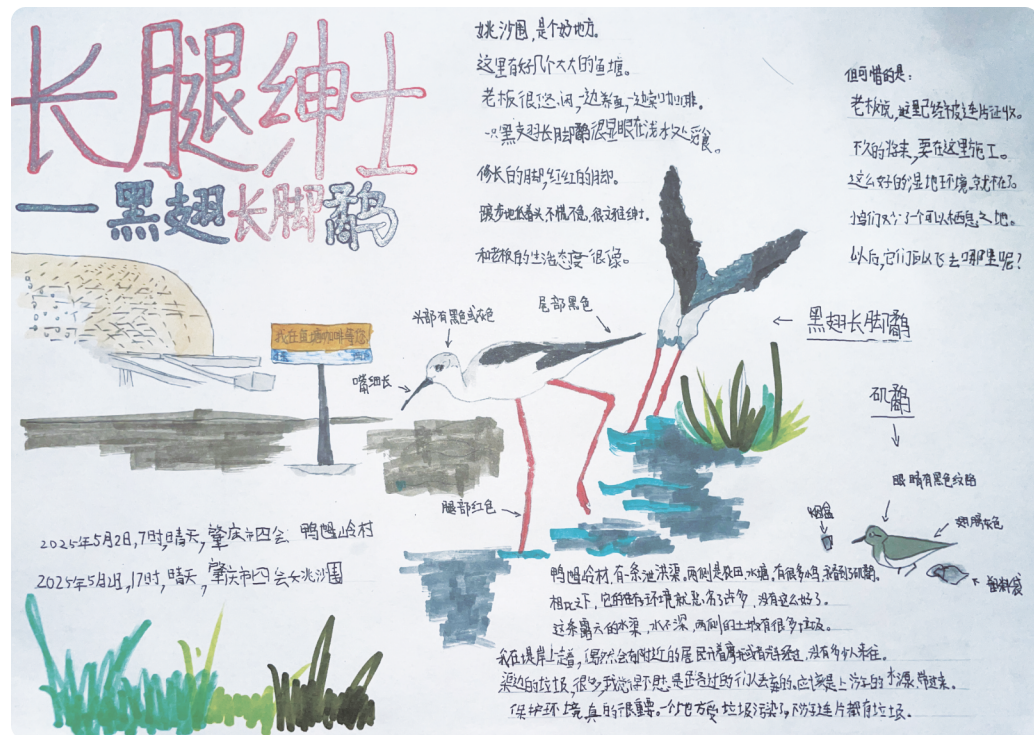 长腿绅士
—黑翅长脚鹬
姚沙围,是个好地方。
这里有好几个大大的鱼塘。
老板很悠闲,一边看画,一边喝咖啡。
一只黑翅长脚鹬很显眼在浅水处觅食。
修长的脚,红红的脚。
踱步地低着头不慌不忙,很文雅绅士。
和老板的生活态度一很像。
但可惜的是:
老板说,这里已经被连片征收。
不久的将来,要在这里施工。
这么好的湿地环境,就不在了。
鸟们又少了一个可以栖息之地。
以后,它们可以飞去哪里呢?
我在鱼塘咖啡等您
头部有黑色或灰色
尾部黑色
嘴细长
腿部红色
← 黑翅长脚鹬
矶鹬
眼睛有黑色纹路
翅膀灰色
烟盒
塑料袋
2025年5月2日,7时,晴天,肇庆市四会 鸭乸岭村
2025年5月2日,17时,晴天,肇庆市四会大姚沙围
鸭乸岭村,有一条泄洪渠。两侧是农田、水塘,有很多鸟,我看到矶鹬。
相比之下,它的生存环境就恶劣了许多,没有这么好了。
这条露天的水渠,水不深,两侧的土坡有很多垃圾。
我在堤岸上走着,偶尔会有附近的居民开着摩托或者汽车经过,没有多少人来往。
渠边的垃圾,很多,我觉得不只是路过的行人丢弃的。应该是上游的水源,带过来。
保护环境真的很重要。一个地方受垃圾污染了,下游连片都有垃圾。